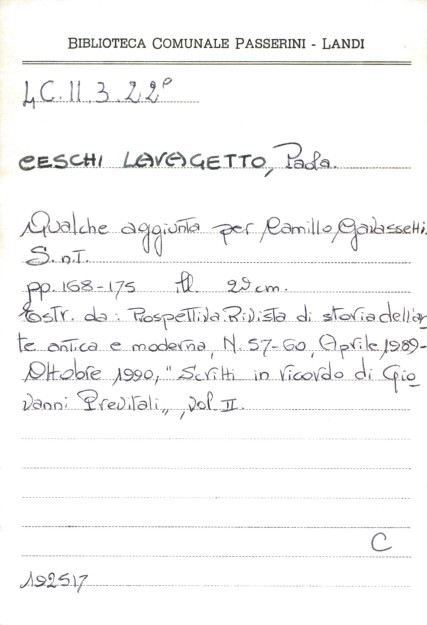 BIBLIOTECA COMUNALE PASSERINI - LANDI
4C.II.3.22º
CESCHI LAVAGETTO, Paola.
Qualche aggiunta per Camillo Gavassetti.
S.n.T.
pp. 168-175 ill. 29 cm.
Estr. da: Prospettiva. Rivista di storia dell'ar
te antica e moderna, N. 57-60, Aprile 1989-
Ottobre 1990, "Scritti in ricordo di Gio
vanni Previtali", vol. II.
C
192517